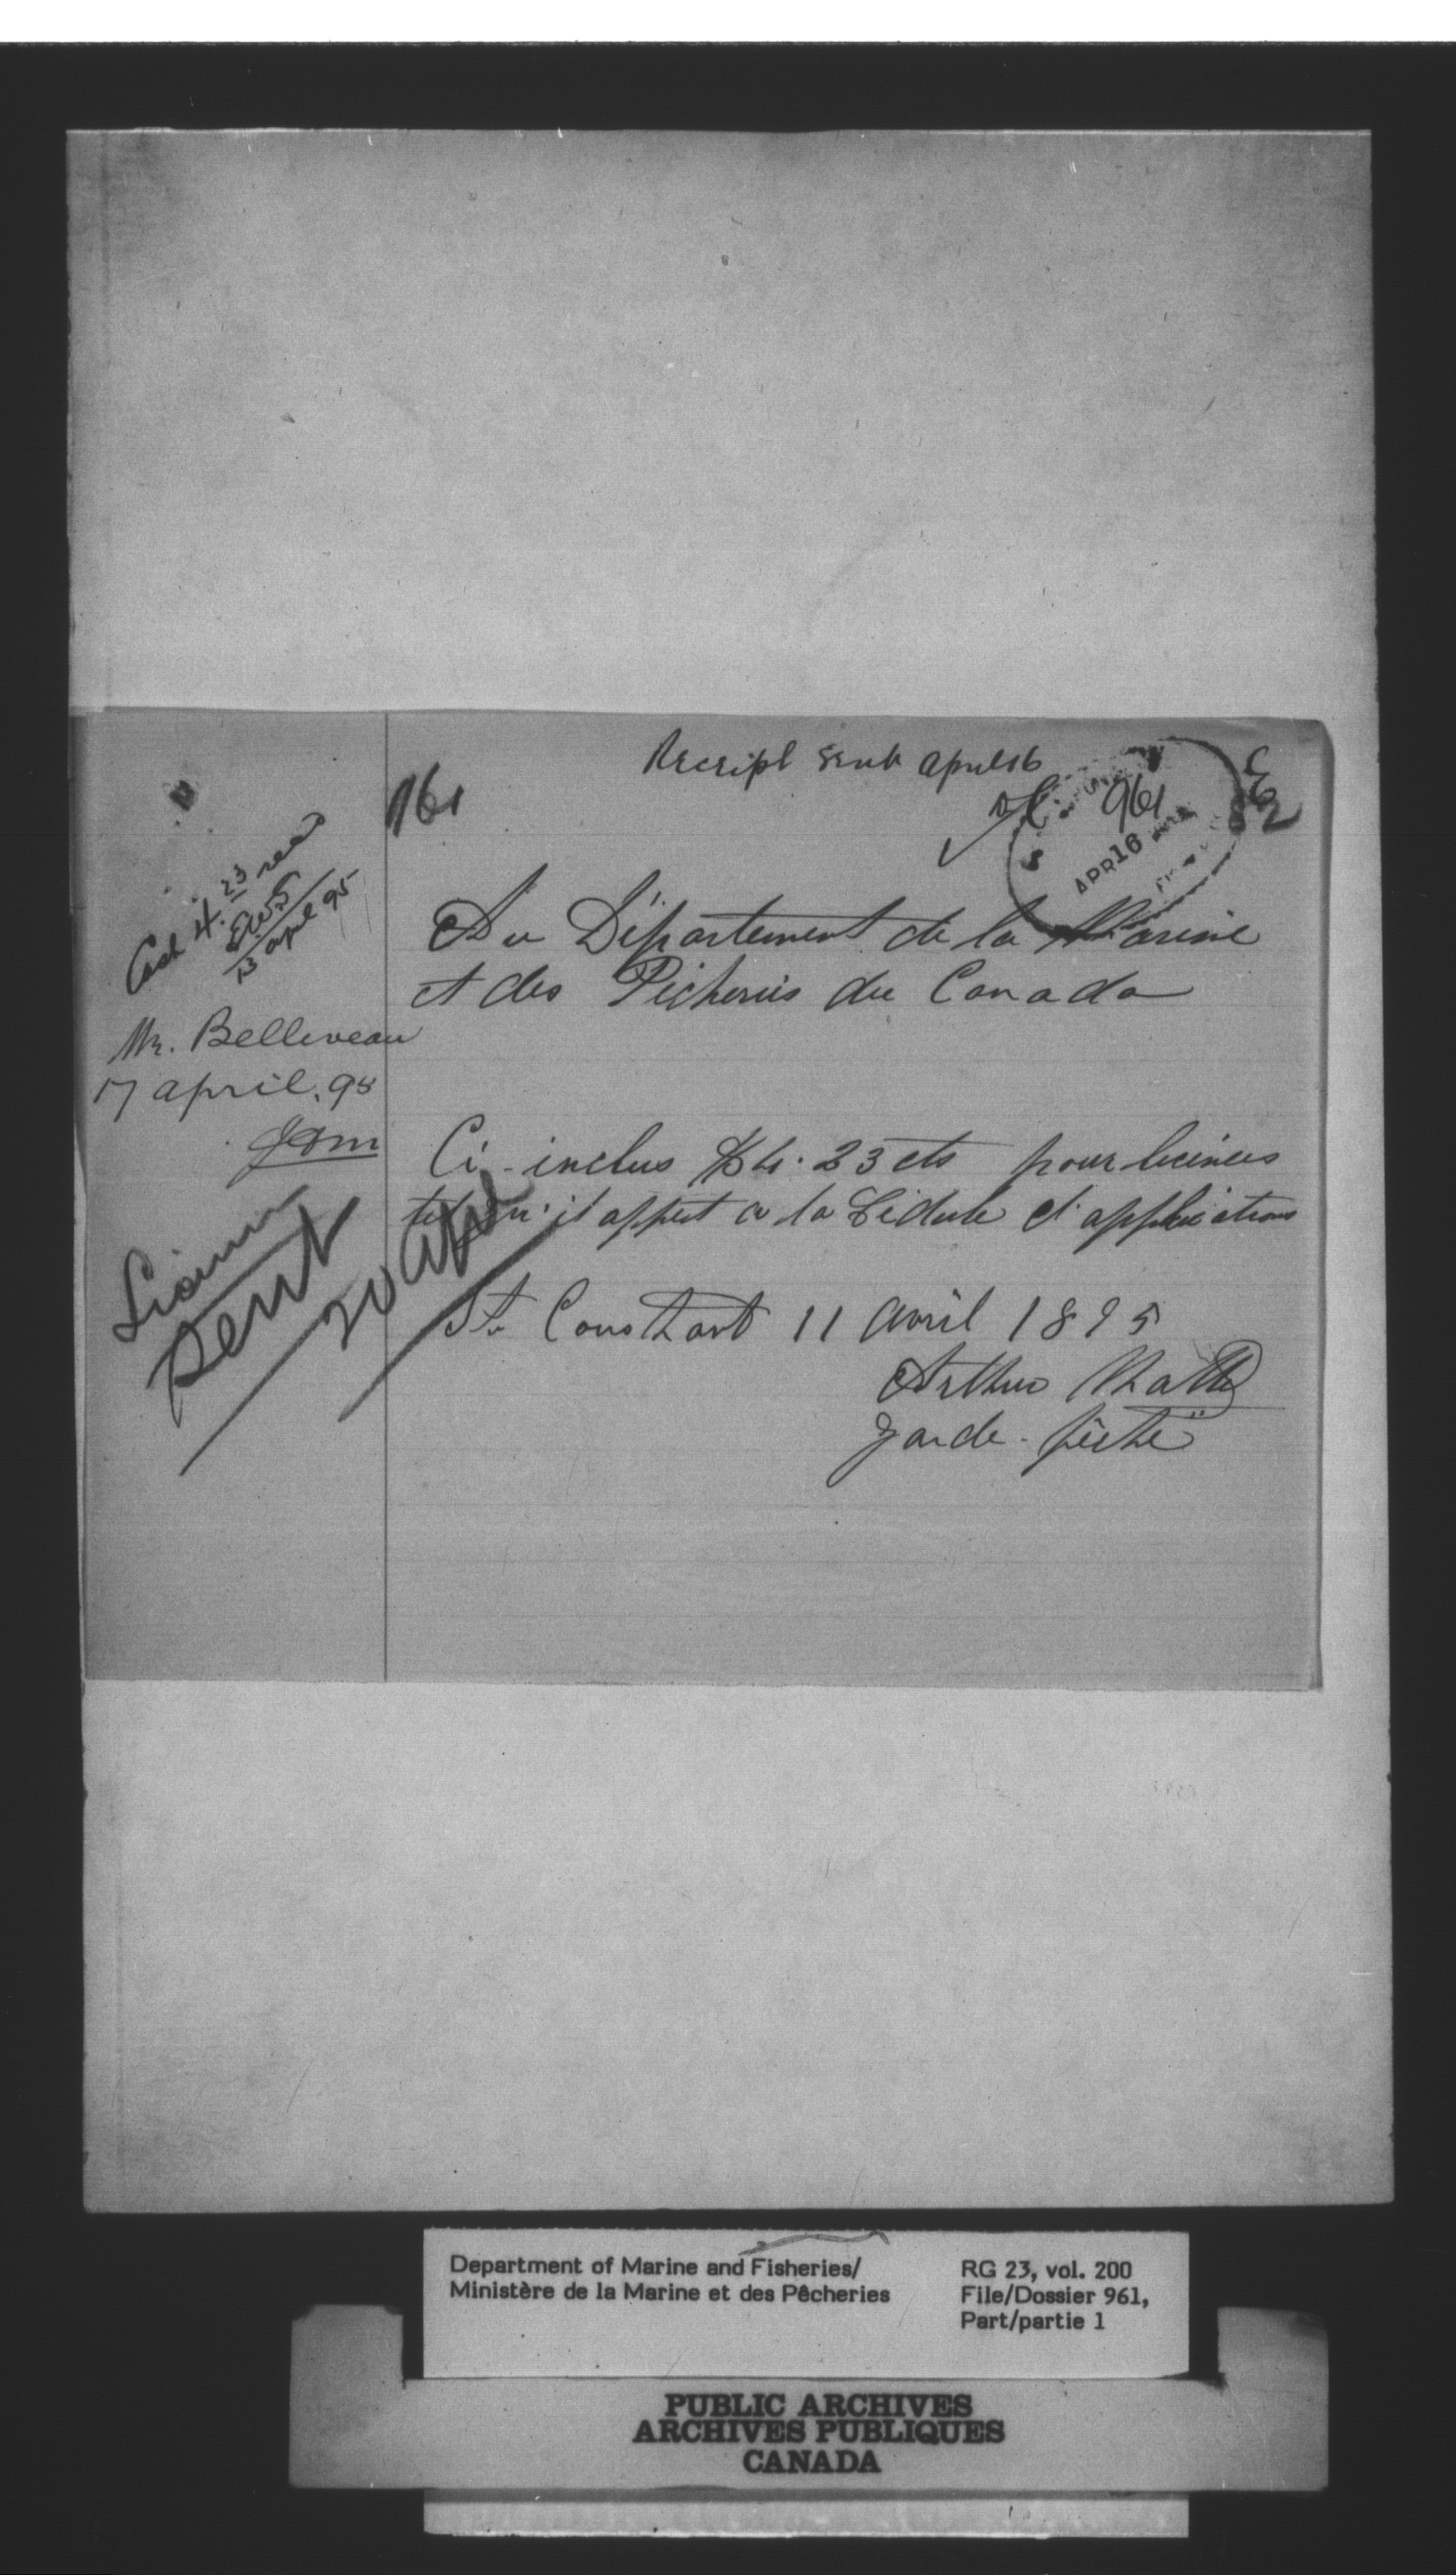 Receipt sent april 16
961
961
APR 16
Cash 4.23 recd
EWS
13 april 95
Au Département de la Marine
et des Pêcheries du Canada
Mr. Belliveau
17 april. 95
Ci-inclus $4.23 cts pour licinces
tel qu'il appert a la Cédule d'applications
sent
20 April
St Constant 11 avril 1895
Arthur
garde-pêche
Department of Marine and Fisheries/
Ministère de la Marine et des Pêcheries
RG 23, vol. 200
File/Dossier 961,
Part/partie 1
PUBLIC ARCHIVES
ARCHIVES PUBLIQUES
CANADA